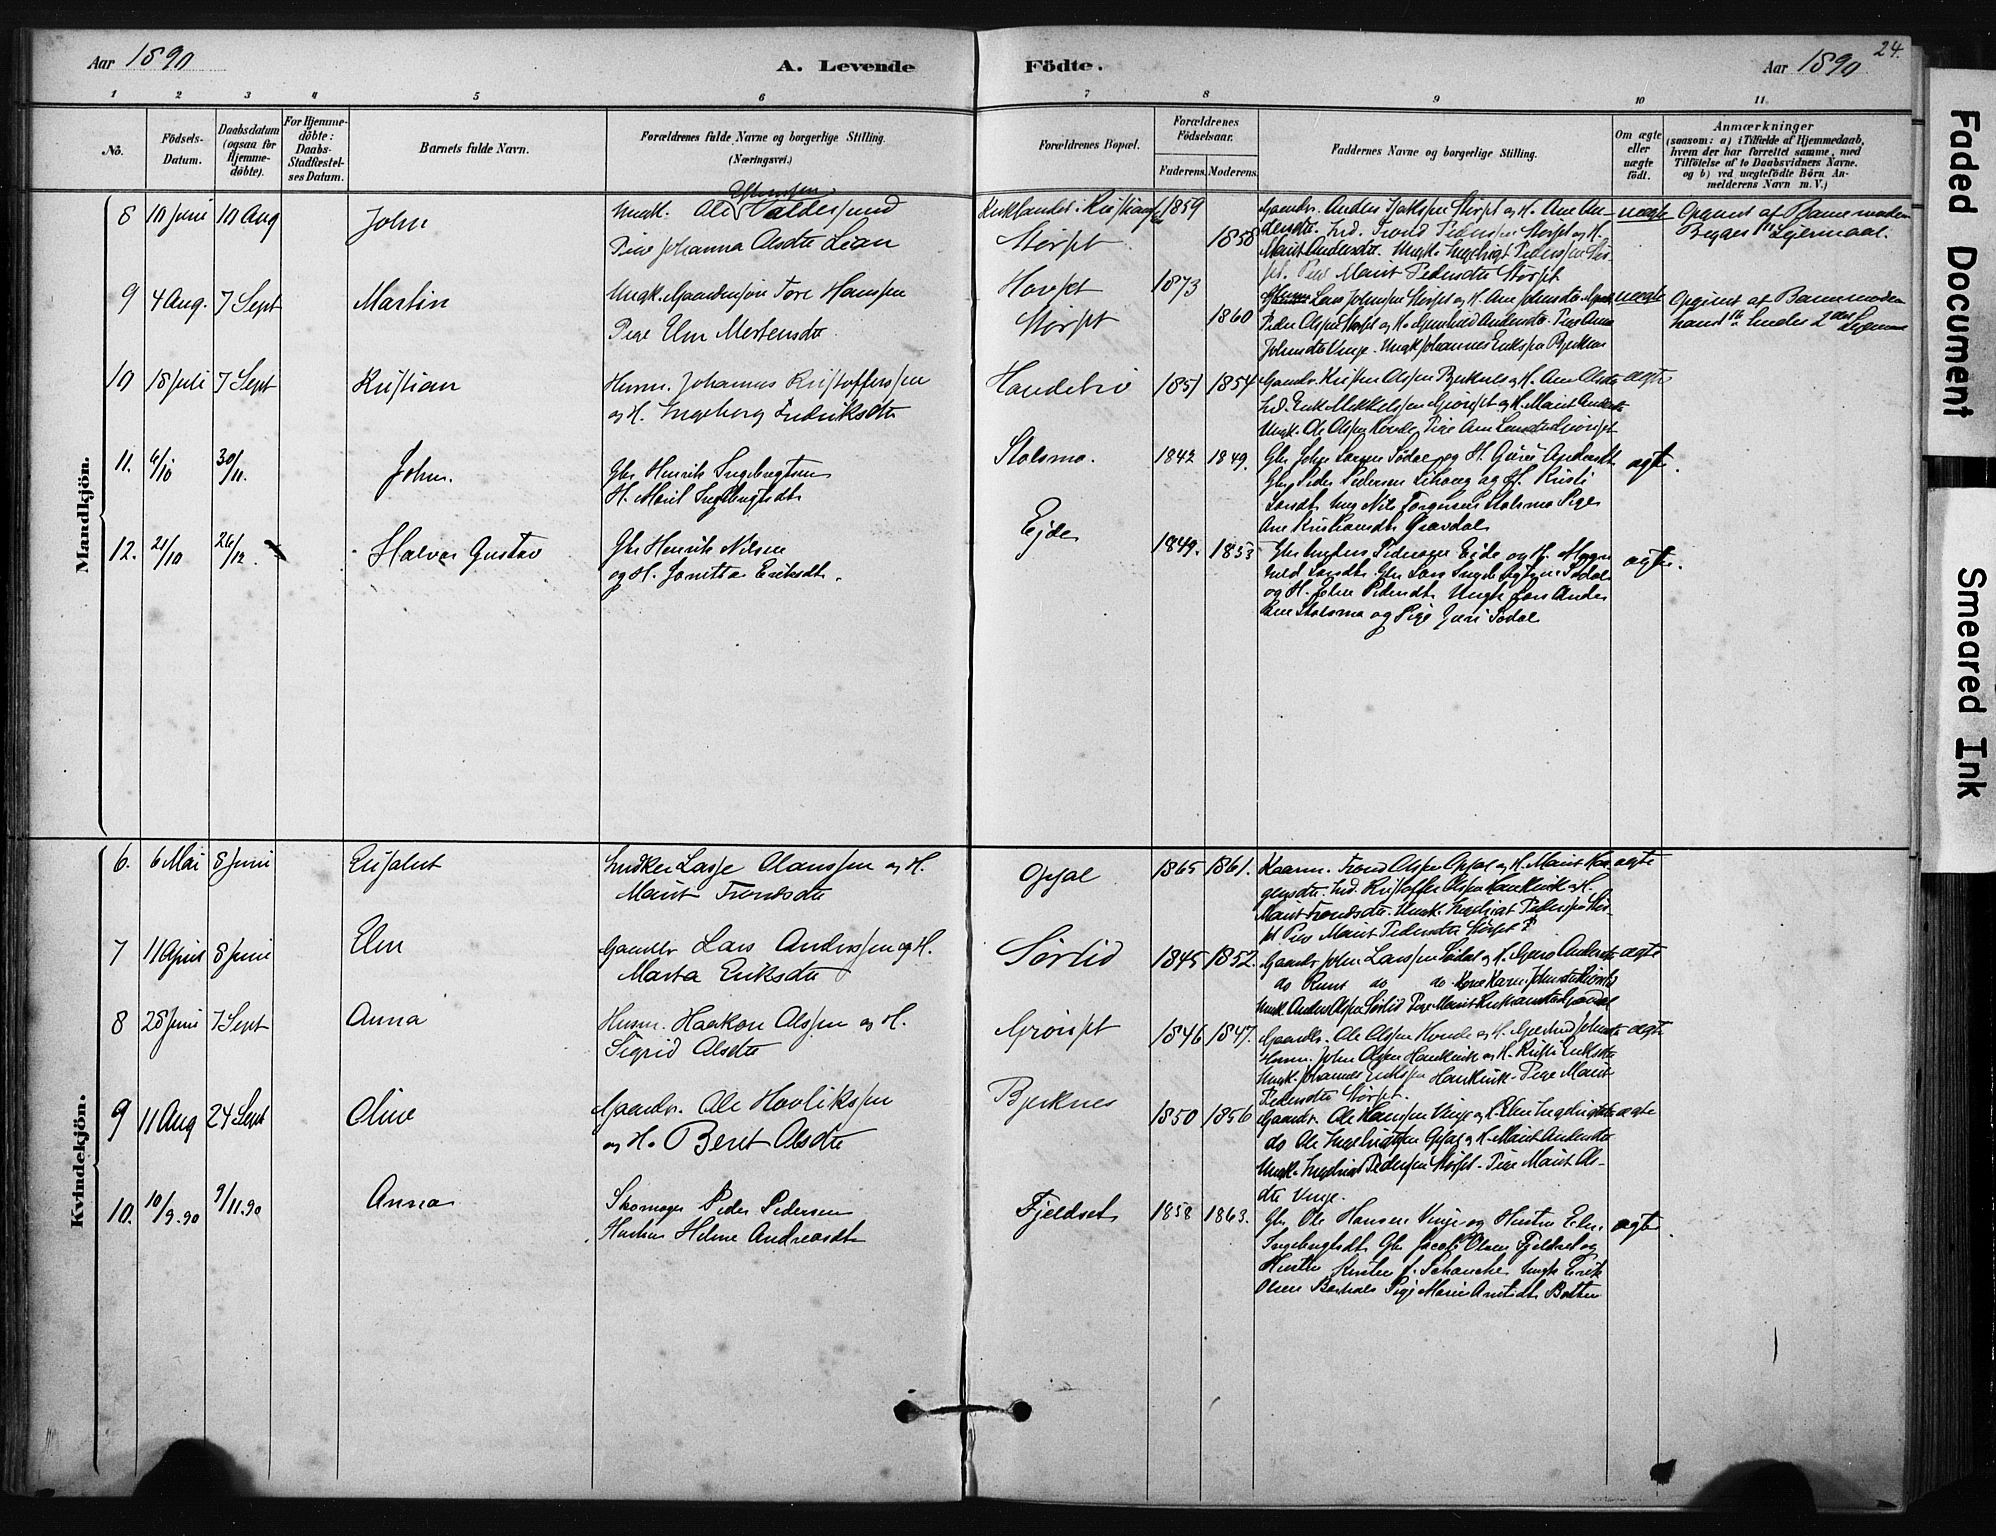 Aar 1890
A. Levende
Födte.
Aar 1890
24.
1 2 3 4 5 6 7 8 9 10 11
No.
Födsels-
Datum.
Daabsdatum
(ogsaa for
Hjemme-
döbte).
For Hjemme-
döbte:
Daabs-
Stadfæstel-
ses Datum.
Barnets fulde Navn.
Forældrenes fulde Navne og borgerlige Stilling.
(Næringsvei.)
Forældrenes Bopæl.
Forældrenes
Födselsaar.
Faderens. Moderens.
Faddernes Navne og borgerlige Stilling.
Om ægte
eller
uægte
födt.
Anmærkninger
(saasom: a) i Tilfælde af Hjemmedaab,
hvem der har forrettet samme, med
Tilföielse af to Daabsvidners Navne.
og b) ved uægtefödte Börn An-
melderens Navn m. V.)
Mandkjön.
8 10 Juni 10 Aug John
Ungk. Ole Valdersund
Pige Johanna Olsdtr Lian
Størset
1859 1858
Gaardbr. Anders Størset og H. Ane An-
dersdtr. Ind. Trond Størset og H.
Marit Andersdtr. Ungk. Ingebrigt Pederssen Stør-
set. Pige Marit Pedersdtr Størset
uægte
Opgivet af Barnemoderen
Begges 1ste Leiermaal.
9 4 Aug. 7 Sept Martin
Ungk. Gaardmandssøn Tore Hanssen
Pige Elen Mortensdtr
Størset
1873 1860
Lars Johnssen Størset og H. Ane Johnsdtr
Peder Olssen Størset og H. Andersdtr. Pige Ane
Johnsdtr Vinje. Ungk Johannes Erikssen Bjerknes
uægte
Opgivet af Barnemoderen
hans 1ste hendes 2det
10 18 Juli 7 Sept Kristian
Husm. Johannes Kristofferssen
og H. Ingeborg Fredriksdtr
1851 1854
Gaardbr. Olssen Bjerknes og H. Ane Olsdtr
Ind. Erik Mikkelssen Grönset og H. Marit Andersdtr
Ungk. Ole Olssen Kvande Pige Ane Larsdtr Grönset
ægte
11. 6/10 30/11. John.
Gbr Henrik Ingebrigtsen
H. Marit Ingebrigtsdtr
Stolsmo.
1842 1849.
Gbr John Larsen Södal og H. Guri Andersdtr
Gbr Peder Pedersen og H. Kristi
Larsdtr Ung Nils Torgersen Stolsmo Pige
Ane Kristiansdtr Gravdal
ægte.
12. 21/10 26/12. Halvor Gustav
Gbr Henrik Nilsen
og H. Eriksdtr.
Eide
1849. 1853
Gbr Anders Pedersen Eide og H. Magn
hild Larsdtr Gbr Lars Ingebrigtsen Södal
og H. Pedersdtr Ungk Lars Anders
sen Stolsmo og Pige Guri Södal
ægte.
Kvindekjön.
6. 6 Mai 8 Juni Elisabet
Lasse Olanssen og H.
Marit Trondsdtr
Opjal
1865 1861.
Kaarm. Trond Olssen Opjal og H. Marit Haa-
gensdtr. Ind. Kristoffer Olssen og H.
Marit Trondsdtr. Ungk. Ingebrigt Pederssen Stör-
set. Pige Marit Pedersdtr Störset
ægte
7 11 April 8 Juni Elen
Gaardbr Lars Anderssen og H.
Marta Eriksdtr
Sörlid
1845 1852.
Gaardbr John Larssen Södal og H. Guro Andersdtr
do do do Kone Karen Johnsdtr
Ungk. Anders Olssen Sörlid Pige Marit Kristiansdtr Gravdal
ægte
8 28 Juni 7 Sept Anna
Husm. Haakon Olssen og H.
Sigrid Olsdtr
Grönset
1846 1847.
Gaardbr. Ole Olssen Kvande og H. Gjertrud Johnsdtr
Husm. John Olssen og H. Kristi Eriksdtr
Ungk. Johannes Erikssen Pige Marit
Pedersdtr Störset.
ægte
9 11 Aug 24 Sept Oline
Gaardbr. Ole Havlikssen
og H. Beret Olsdtr
Bjerknes
1850 1856
Gaardbr. Ole Hanssen Vinje og H. Elen Ingebrigtsdtr
do Ole Ingebrigtssen Opjal og H. Marit Andersdtr
Ungk. Ingebrigt Pederssen Störset. Pige Marit Ols-
dtr Vinje.
ægte
10. 10/9.90 9/11.90 Anna
Skomager Peder Pedersen
Hustru Helene Andreasdtr
Fjeldset
1858 1863.
Gbr Ole Hansen Vinje og Hustru Elen
Ingebrigtsdtr Gbr Jacob Olsen Fjeldset og
Hustru Kirsten f. Schancke Ungk Erik
Olsen Pige Marie Arntsdtr Botten
ægte.
Faded Document
Smeared Ink